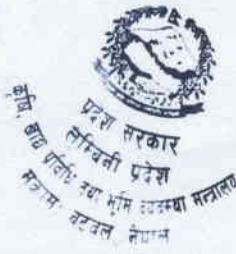 प्रदेश सरकार
लुम्बिनी प्रदेश
कृषि, खाद्य प्रविधि तथा भूमि व्यवस्था मन्त्रालय
बुटवल नेपाल